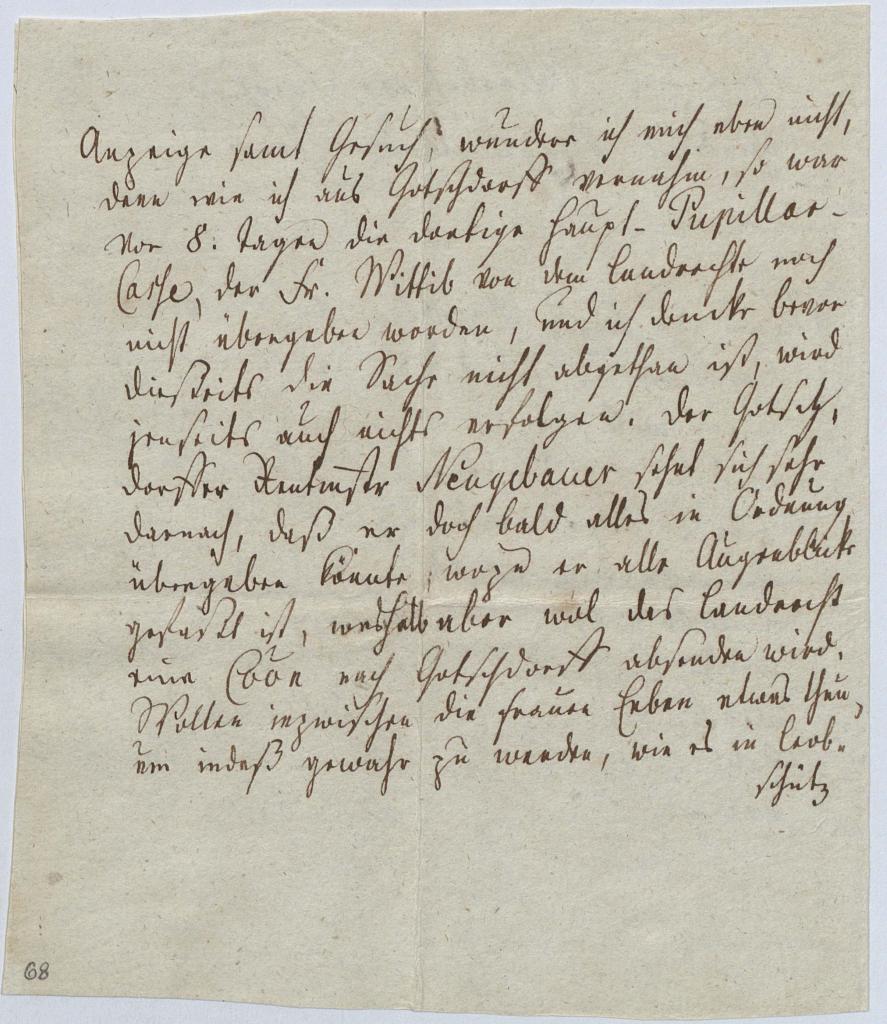 Anzeige samt Gesuch, wundere ich mich eben nicht,
denn wie ich aus Gotschdorff vernahm, so war
vor 8. Tagen die dortige Haupt- Pupillar-
Casse, der Fr. Wittib von dem Landrechte noch
nicht übergeben worden, und ich dencke bevor
diesseits die Sache nicht abgethan ist, wird
jenseits auch nichts erfolgen. Der Gotsch-
dorffer Rentmstr Neugebauer sehnt sich sehr
darnach, daß er doch bald alles in Ordnung
übergeben könnte, wozu er alle Augenblicke
gefaßt ist, weshalb aber wol das Landrecht
eine Coon nach Gotschdorff absenden wird.
Wolten inzwischen die Frauen Erben etwas thun,
um indeß gewahr zu werden, wie es in Leob-
schütz
68